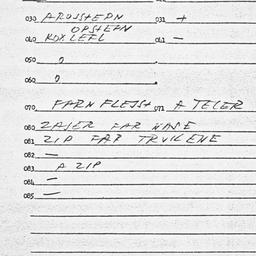 030 AROJSTEPN 031 +
OPSTEPN
040 KOX LEFL 041 —
050 0
060 0
070 FARN FLEJSH 071 A TELER
080 ZAJER FAR NASE
081 ZIP FAR TRVKENE
082 —
083 A ZIP
084 —
085 —